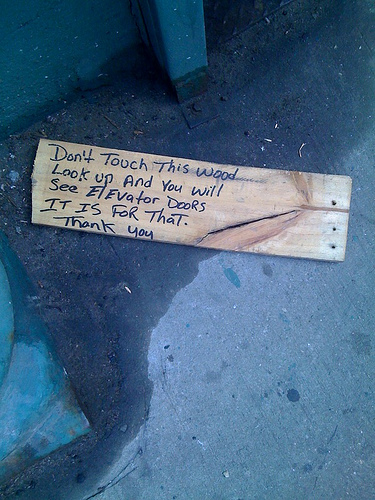 Don't Touch This wood
Look up And You will
See ElEvator Doors
IT IS FOR ThaT.
Thank you